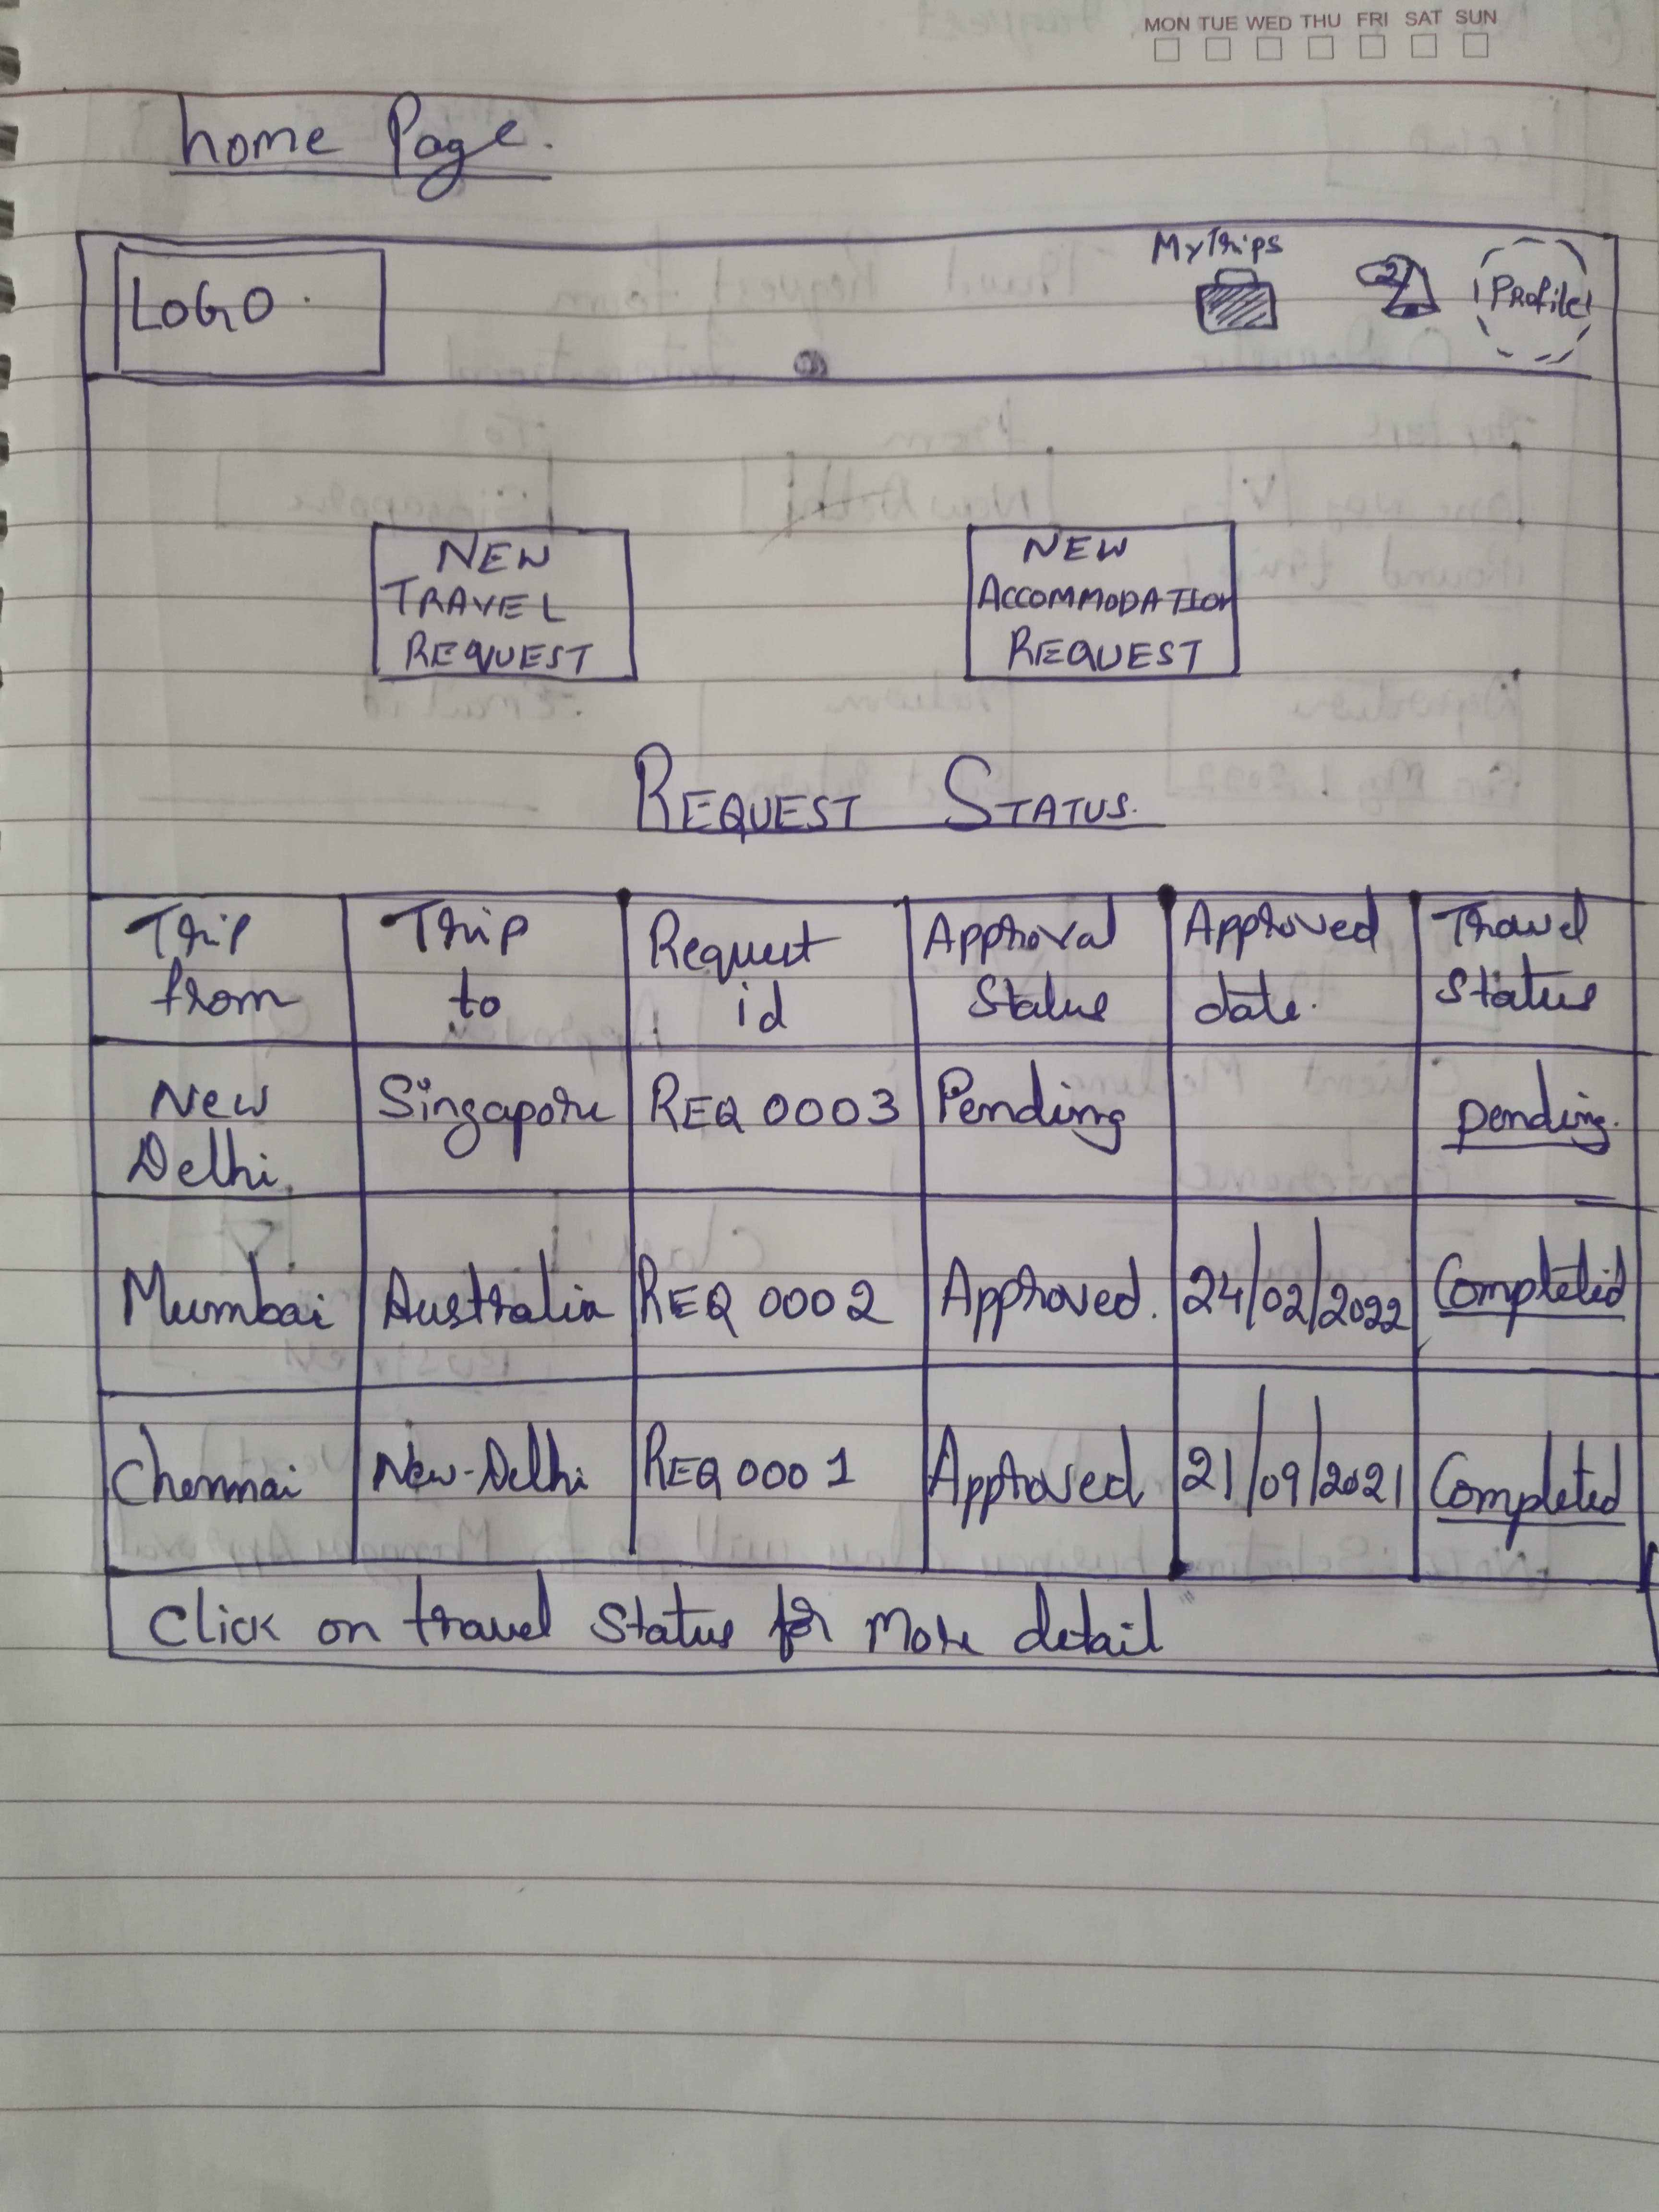 MON TUE WED THU FRI SAT SUN
home Page.
My Trips
LOGO
2
Profile
NEW
TRAVEL
REQUEST
NEW
ACCOMMODATION
REQUEST
REQUEST STATUS.
Trip
from
Trip
to
Request
id
Approval
Status
Approved
date.
Travel
Status
New
Delhi.
Singapore
REQ 0003
Pending
pending.
Mumbai
Australia
REQ 0002
Approved.
24/02/2022
Completed
Chennai
New-Delhi
REQ 0001
Approved
21/09/2021
Completed
Click on travel Status for More detail